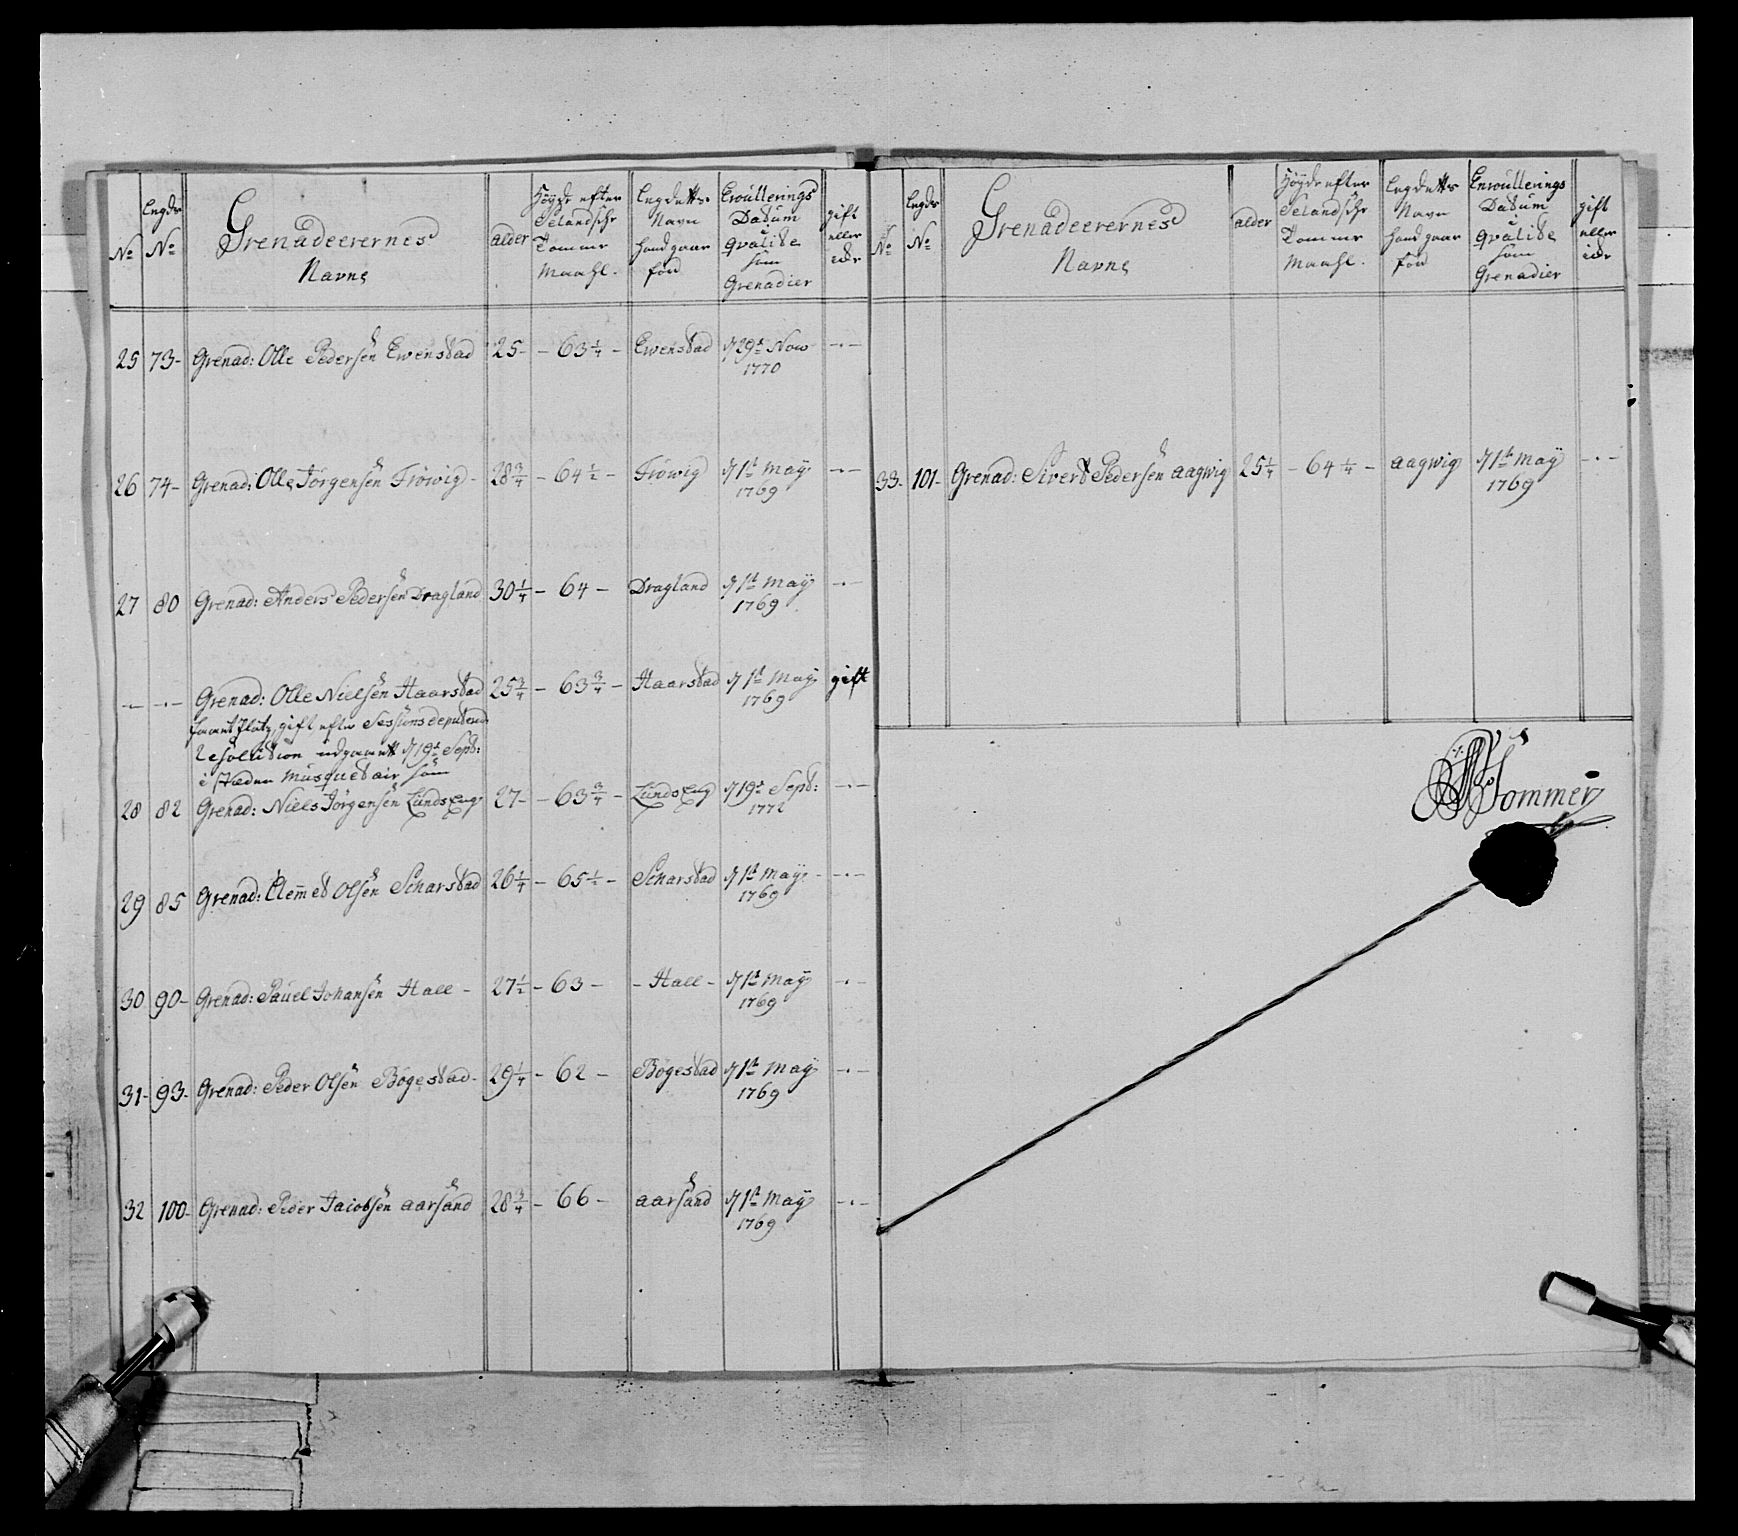 No
Legds No
Grenadeerernes Navne
alder
Høyde efter Selandske Tomme Maahl.
Legdetts Navn hand gaar for
Enroullerings Datum qvalite som Grenadier
gift eller ide
25 73- Grenad: Olle Pedersen Ewenstad 25- - 63 1/4 - Ewenstad d 29t Now 1770 -·-
26 74- Grenad: Olle Jørgensen Frøwig - 28 3/4 - 64 1/2 Frøwig d 1t Maÿ 1769 -·-
27 80 Grenad: Anders Pedersen Dragland 30 1/4 - 64 - Dragland d 1t Maÿ 1769 -·-
-·- -·- Grenad: Olle Nielsen Haarstad 25 3/4 - 63 3/4 - Haarstad d 1t Maÿ 1769 gift
gift efter Sessions deputerd
Resolution udgaaett d 19t Sept:
i stæden Musquetair som
28 82 Grenad: Niels Jørgensen Lunds Eng 27- - 63 3/4 - Lunds Eng d 19t Sept: 1772 -·-
29 85 Grenad: Clem̅et Olsen Scharstad 26 1/4 - 65 1/2 - Scharstad d 1t Maÿ 1769 -·-
30 90- Grenad: Pauel Johansen Hall - 27 1/2 - 63 - - Hall - d 1t Maÿ 1769 -·-
31- 93- Grenad: Peder Olsen Bøgestad- 29 1/4 - 62 - Bøgestad d 1t Maÿ 1769 -·-
32 100- Grenad: Peder Jacobsen aarsand 28 3/4 - 66 - aarsand d 1t Maÿ 1769 -·-
No
Legds No
Grenadeerernes Navne
alder
Høyde efter Selandske Tomme Maahl.
Legdetts Navn hand gaar for
Enroullerings Datum qvalite som Grenadier
gift eller ide
33- 101- Grenad: Sivert Pedersen aagwig 25 1/4 - 64 1/4 - aagwig d 1t Maÿ 1769 -·-
Sommer